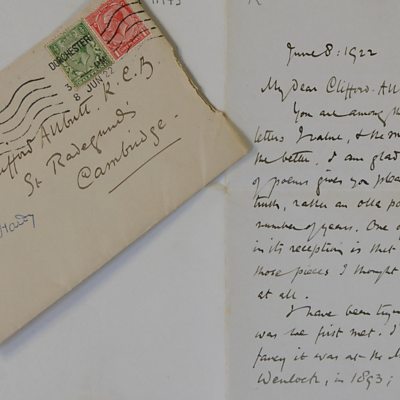 DORCHESTER
3
AM
8 JUN 22
Clifford Allbutt, K.C.B.
St Radegund's
Cambridge.
Hardy
June 8: 1922
My Dear Clifford Allb
You are among th
letters I value, & the m
the better, I am glad
of poems gives you pleas
truth, rather an old po
number of years. One o
in its reception is that
those pieces I thought
at all.
I have been tryin
was we first met. I
fancy it was at the M
Wenlock, in 1893;